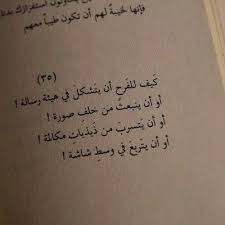 فإنها لخيبةٌ لهم أن تكون طيباً معهم
(٣٥)
كيف للفرح أن يتشكل في هيئة رسالة !
أو أن ينبعثُ من خلف صورة !
أو أن يتسربَ من ذبذبات مكالمة !
أو أن يتربعَ في وسطِ شاشة !